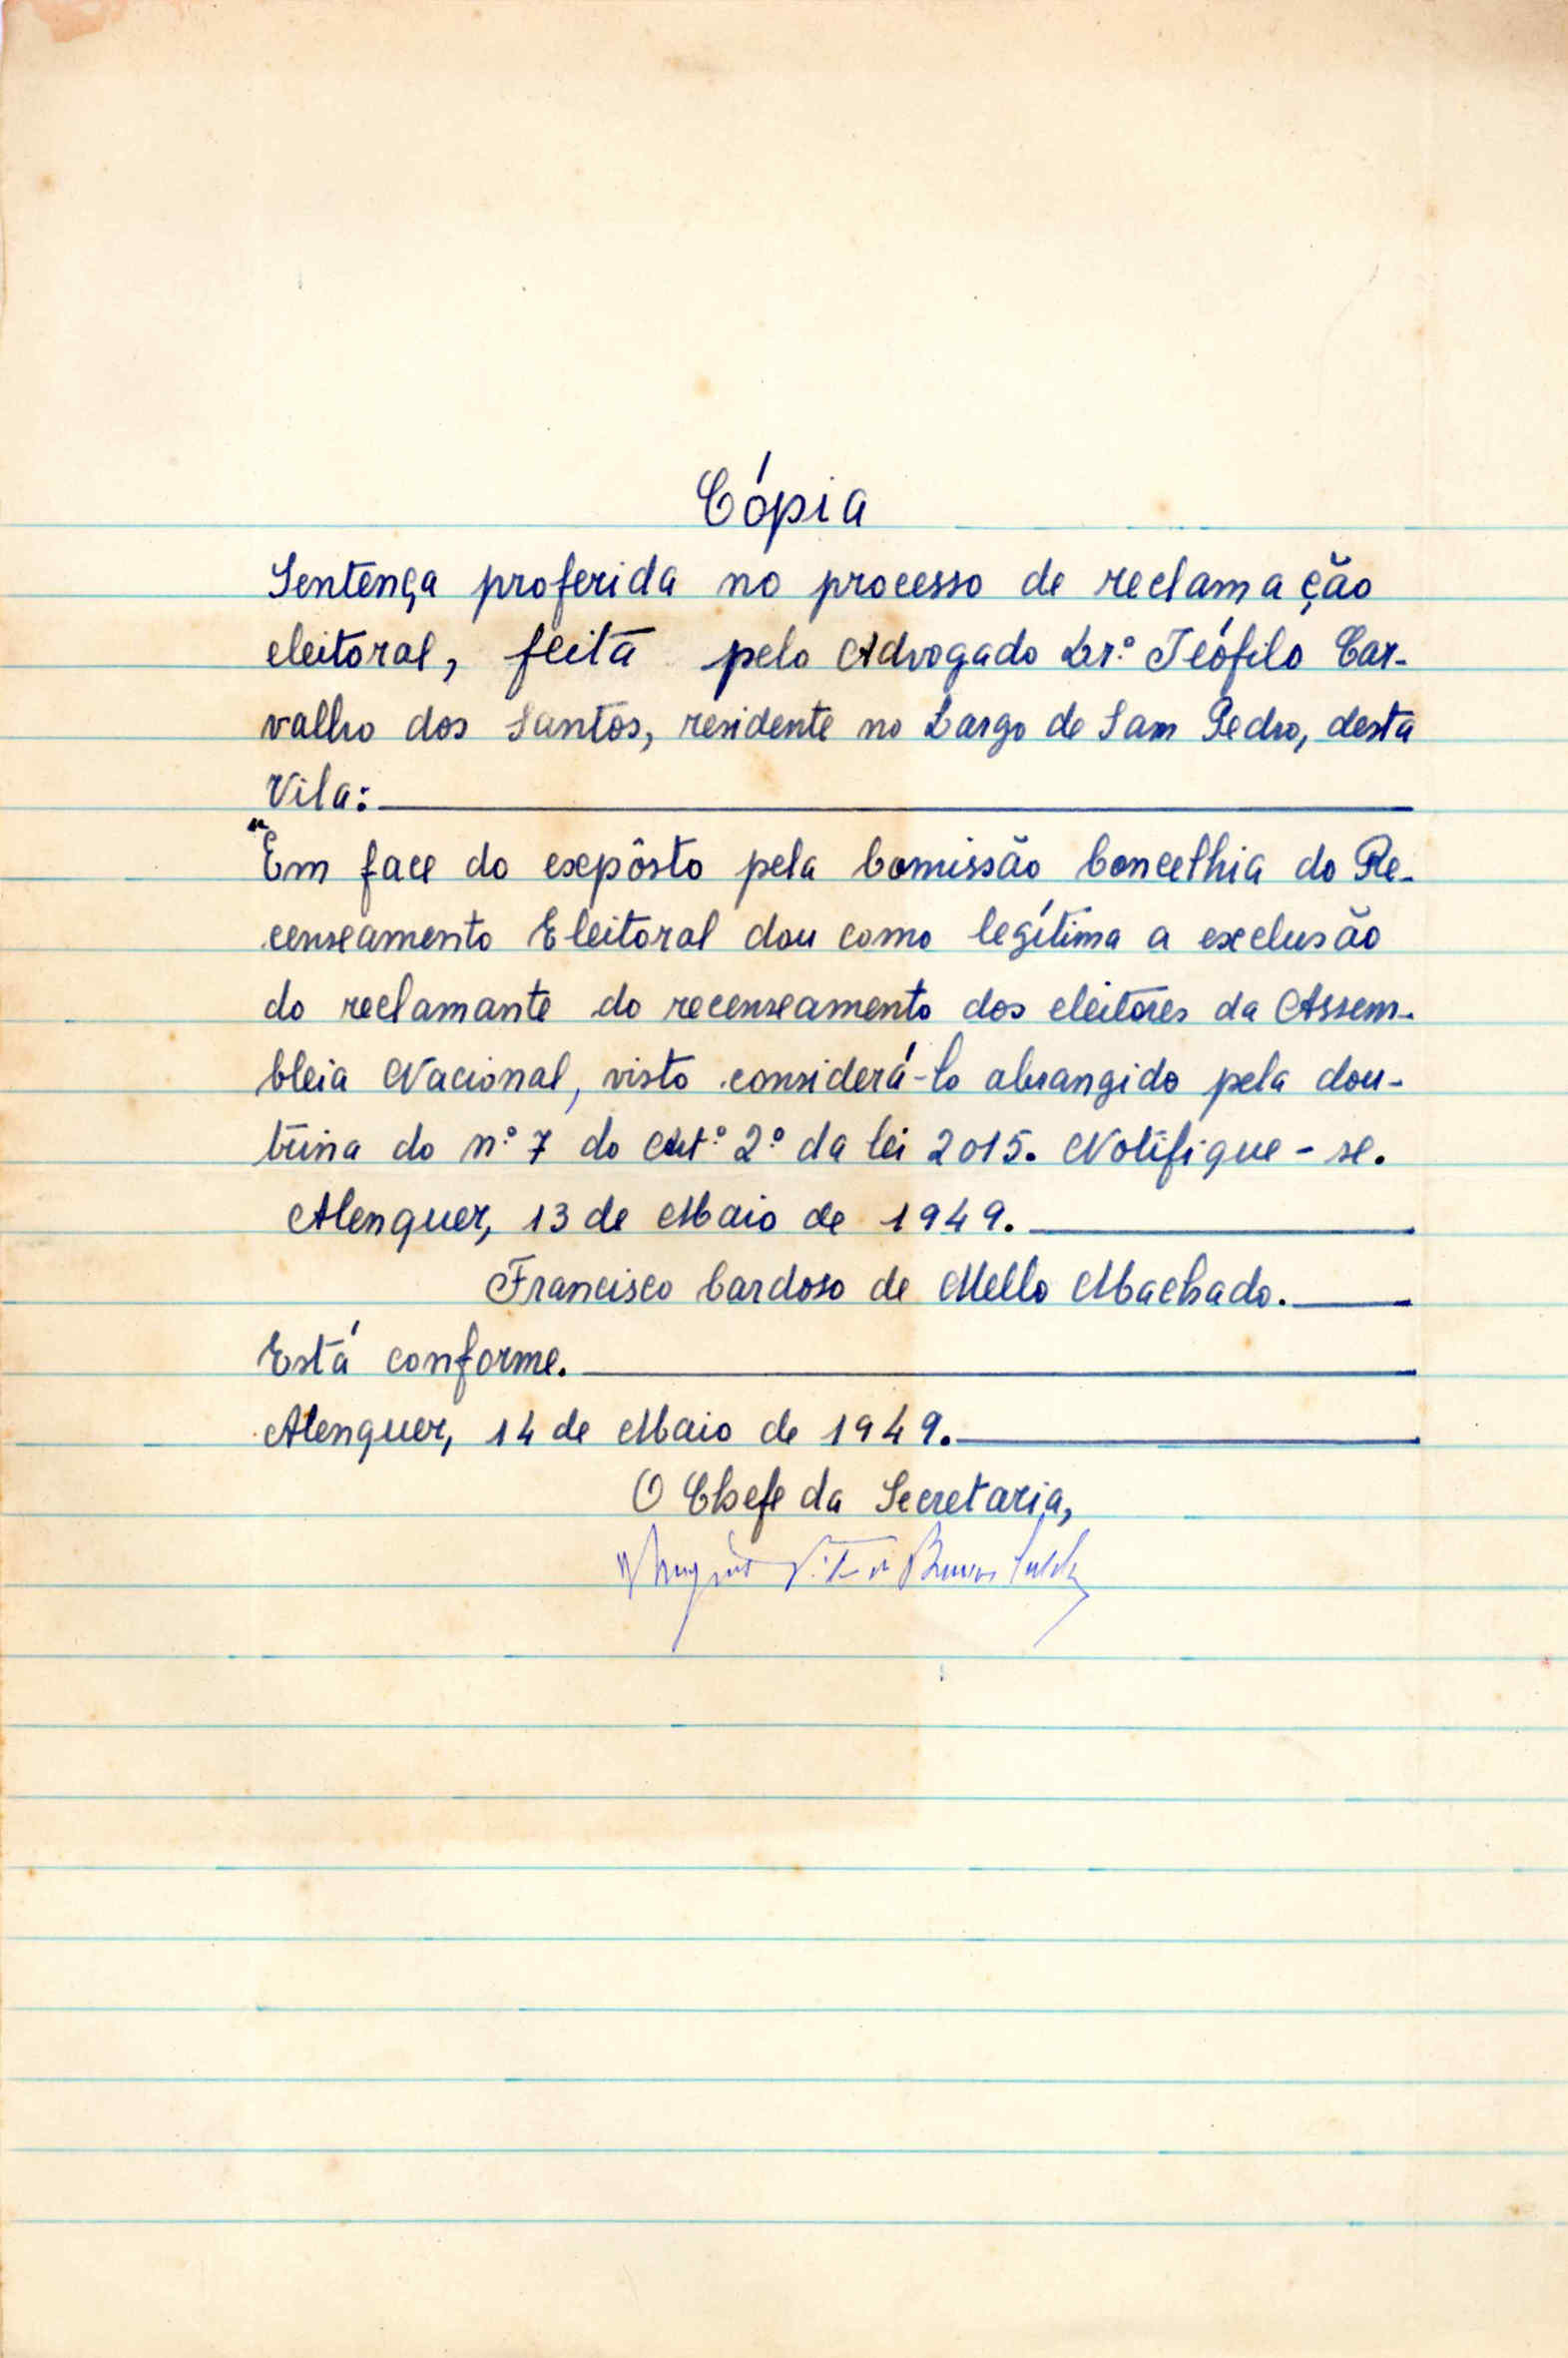 Cópia
Sentença proferida no processo de reclamação
eleitoral, feita pelo Advogado Dr.º Teófilo Car-
valho dos Santos, residente no Largo de Sam Pedro, desta
Vila:
"Em face do expôsto pela Comissão Concelhia do Re-
censeamento Eleitoral dou como legítima a exclusão
do reclamante do recenseamento dos eleitores da Assem-
bleia Nacional, visto considerá-lo abrangido pela dou-
trina do n.º 7 do Art.º 2.º da lei 2015. Notifique-se.
Alenquer, 13 de Maio de 1949.
Francisco Cardoso de Mello Machado.
Está conforme.
Alenquer, 14 de Maio de 1949.
O Chefe da Secretaria,